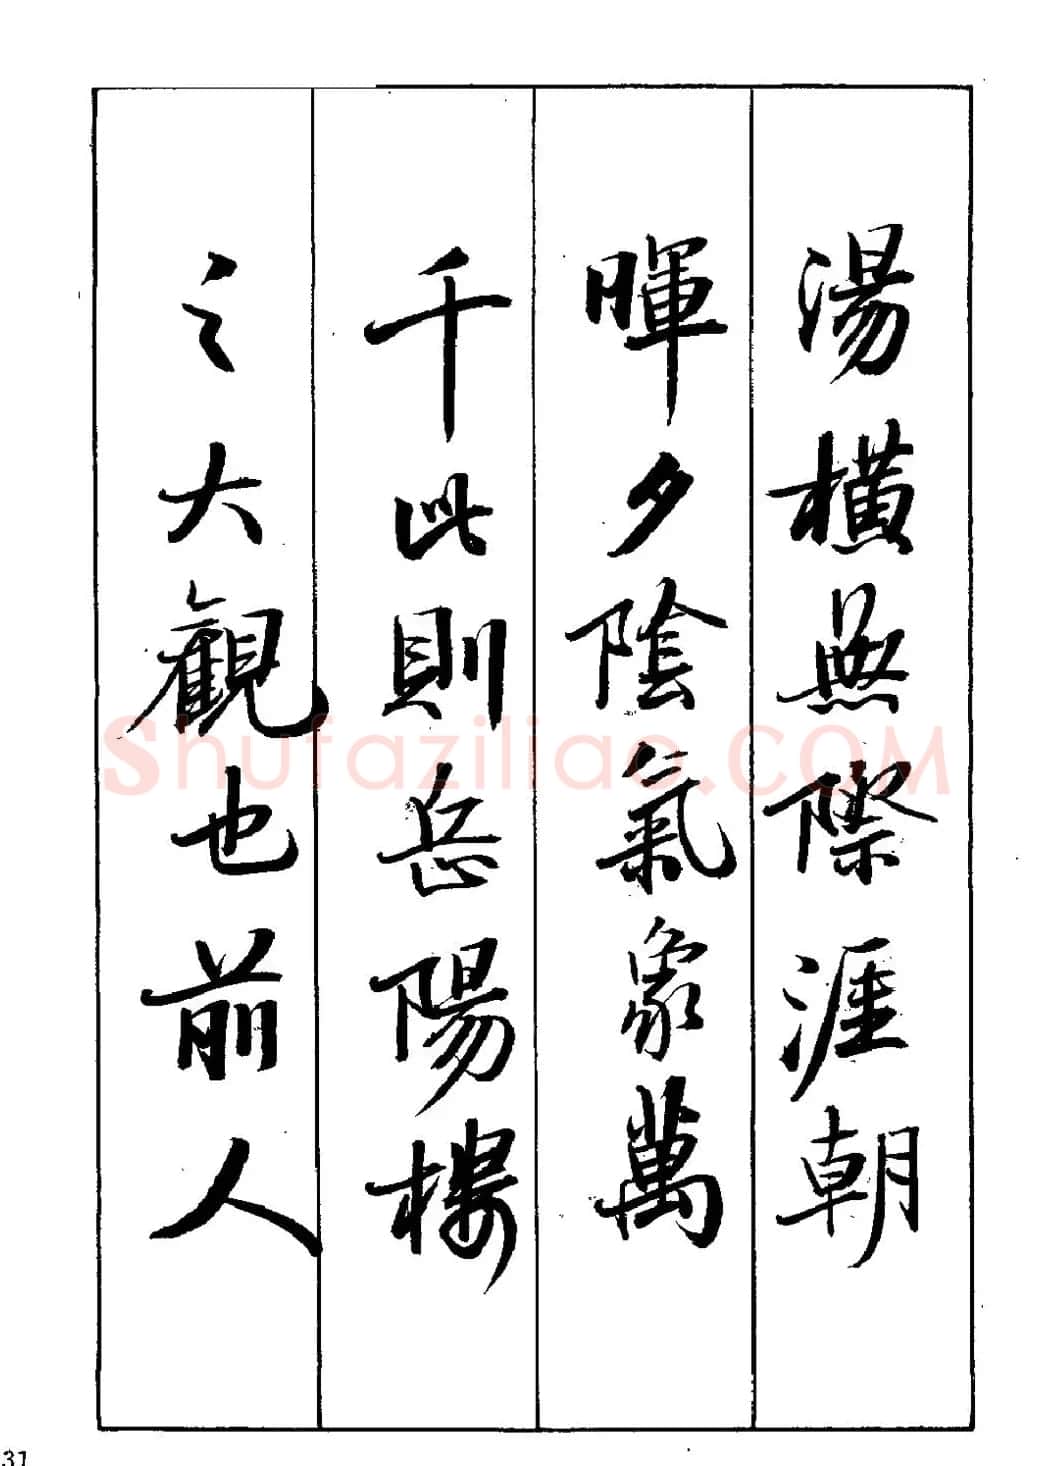 湯橫無際涯朝
暉夕陰氣象萬
千此則岳陽樓
之大觀也前人
Shufaziliao.COM
31